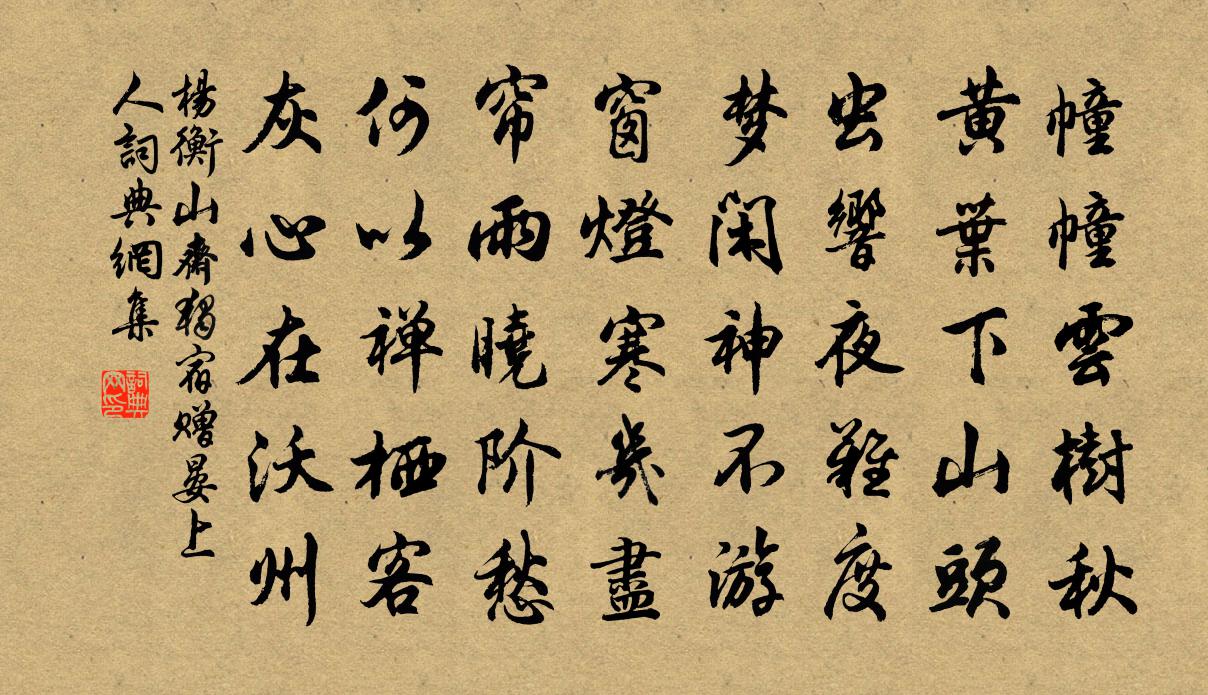 幢幢雲樹秋
黃葉下山頭
虫響夜難度
梦闲神不游
窗燈寒幾盡
帘雨曉阶愁
何以禅栖客
灰心在沃州
楊衡山齋獨宿赠晏上
人詞典網集
詞典網印